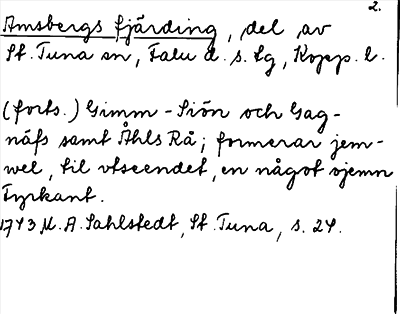 2.
Amsbergs fjärding, del av
St. Tuna sn, Falu d. s. tg, Kopp. l.
(forts.) Gimm-Siön och Gag-
näfs samt Åhls Rå; formerar jem-
wel, til utseendet, en något ojemn
Fyrkant.
1743 M. A. Sahlstedt, St. Tuna, s. 24.